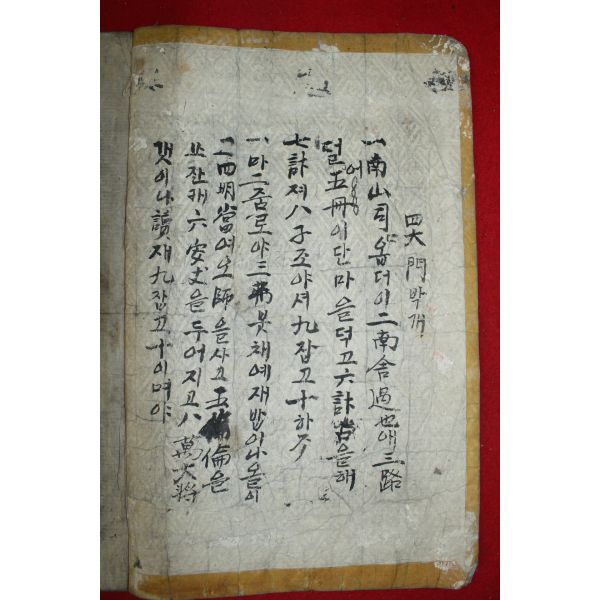 四大門박개
一南山되옵더이二南舍過也애三路
덜五冊이단마을덕고六卦

을해
七卦져八子조야셔九잡고十하
一마二줌로야三 못채예재밥이나올이
二四明當여오師을사고五倫을
쪼잔캐六安丈을두어지고八萬大將
갯이나讀재九잡고十이며야